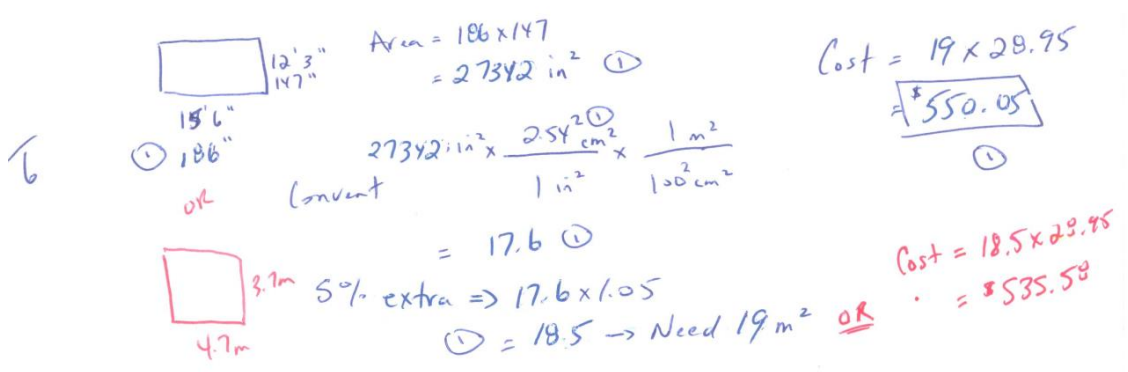 6
12'3"
147"
15'6"
① 186"
Area = 186 x 147
= 27342 in² ①
Convert 27342 in² x 2.54² cm² ① / 1 in² x 1 m² / 100² cm²
= 17.6 ①
5% extra => 17.6 x 1.05
① = 18.5 → Need 19 m² OR
Cost = 19 x 28.95
= $550.05
①
OR
3.7m
4.7m
Cost = 18.5 x 28.95
= $535.58